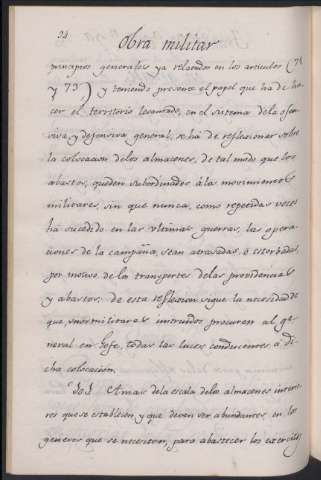 34
Obra militar
principios generales ya relatados en los articulos (71
y 73) y teniendo presente el papel que ha de ha
cer el territorio levantado, en el sistema de la ofen
siva y defensiva general, se ha de reflexionar sobre
la colocacion de los almacenes, de tal modo que los
abastos, queden subordinados á las movimientos
militares, sin que nunca, como repetidas veces
ha sucedido en las ultimas guerras, las opera
ciones de la campaña, sean atrasadas, ó estorbadas,
por motivo de los transportes de las providencias
y abastos; de esta reflexion sigue la necesidad de
que, unos militares instruidos procuren al ge
neral en Gefe, todas las luces conducentes á di
cha colocacion.
101 A mas de la escala de los almacenes interi
res que se establecen y que deven ser abundantes en los
generos que se necesitan, para abastecer los exercitos,